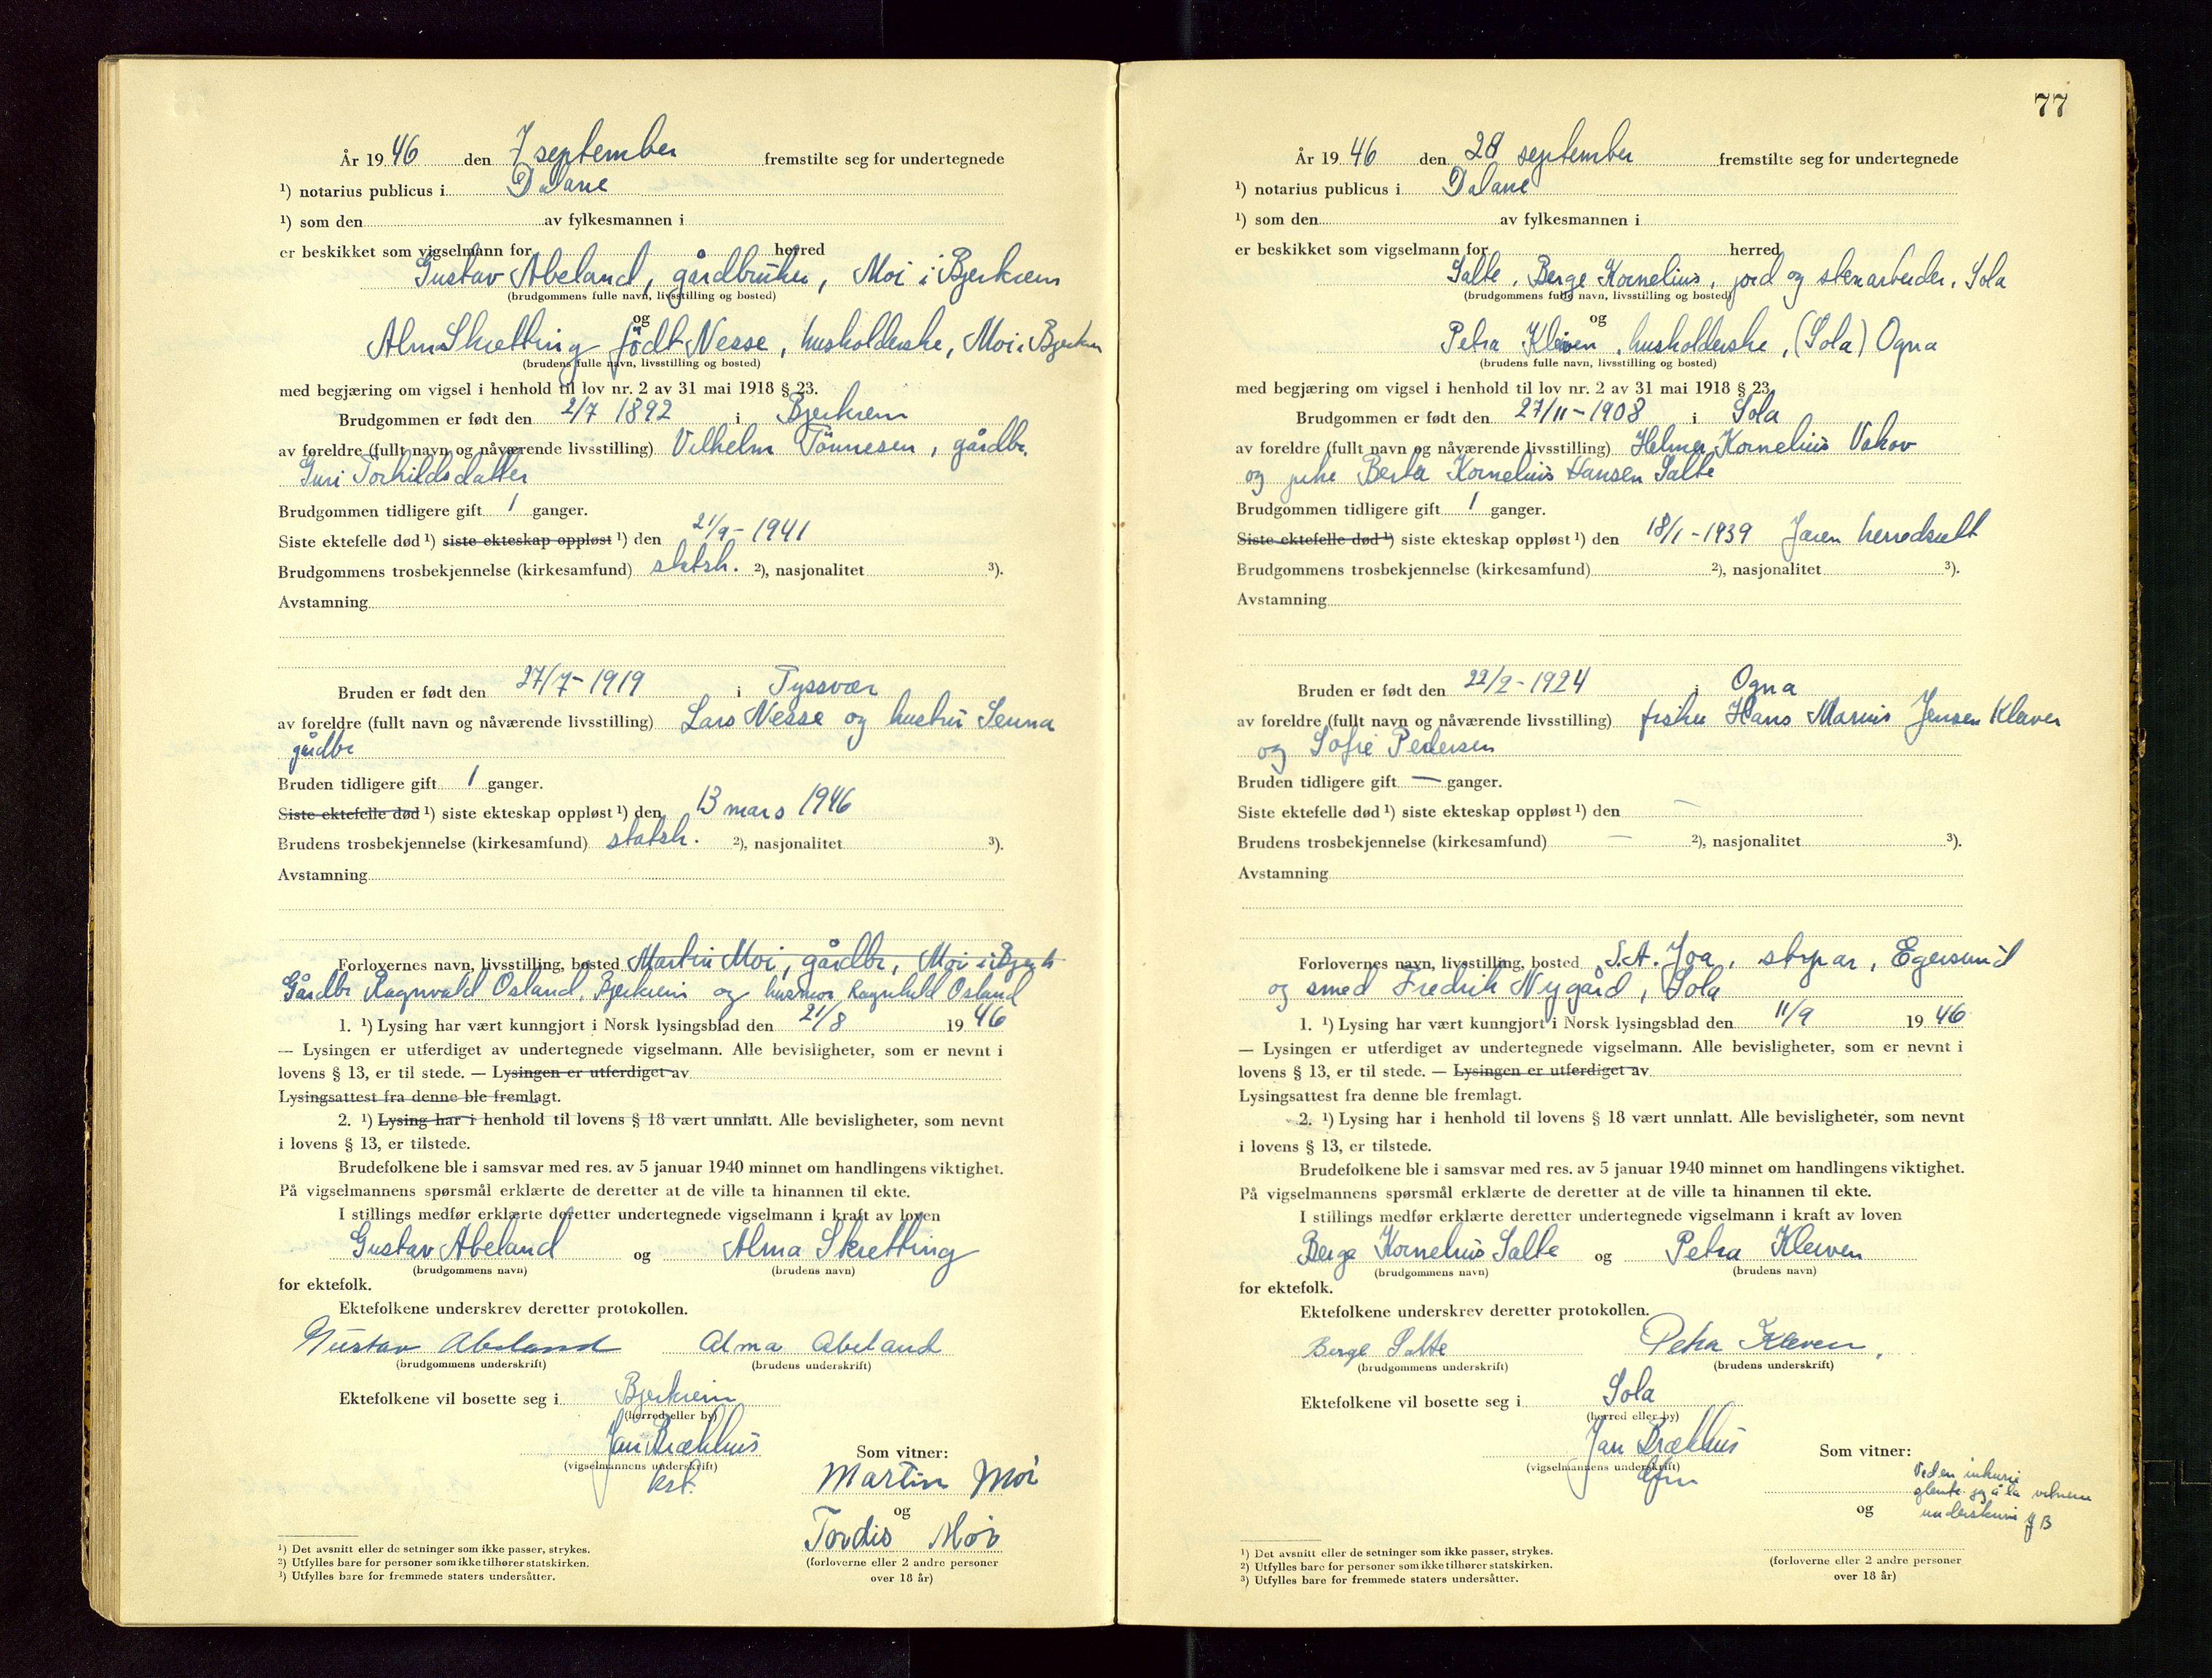 År 1946 den 7 september fremstilte seg for undertegnede
¹) notarius publicus i Dalane
¹) som den av fylkesmannen i
er beskikket som vigselmann for herred
Gustav Abeland, gårdbruker, Moi i Bjerkreim
(brudgommens fulle navn, livsstilling og bosted)
og
Alma Skretting født Nesse, husholderske, Moi i Bjerkreim
(brudens fulle navn, livsstilling og bosted)
med begjæring om vigsel i henhold til lov nr. 2 av 31 mai 1918 § 23.
Brudgommen er født den 2/7 1892 i Bjerkreim
av foreldre (fullt navn og nåværende livsstilling) Vilhelm Tønnesen, gårdbr.
Guri Torkildsdatter
Brudgommen tidligere gift 1 ganger.
Siste ektefelle død ¹) siste ekteskap oppløst ¹) den 21/9-1941
Brudgommens trosbekjennelse (kirkesamfund) statsk. ²), nasjonalitet ³).
Avstamning
Bruden er født den 27/7-1919 i Tyssvær
av foreldre (fullt navn og nåværende livsstilling) Lars Nesse og hustru Senna
gårdbr
Bruden tidligere gift 1 ganger.
Siste ektefelle død ¹) siste ekteskap oppløst ¹) den 13 mars 1946
Brudens trosbekjennelse (kirkesamfund) statsk. ²), nasjonalitet ³).
Avstamning
Forlovernes navn, livsstilling, bosted Martin Moi, gårdbr, Moi i Bjerkr
Gårdbr Ragnvald Osland, Bjerkreim og husmor Ragnhild Osland
1. ¹) Lysing har vært kunngjort i Norsk lysingsblad den 21/8 1946
— Lysingen er utferdiget av undertegnede vigselmann. Alle bevisligheter, som er nevnt i
lovens § 13, er til stede. — Lysingen er utferdiget av
Lysingsattest fra denne ble fremlagt.
2. ¹) Lysing har i henhold til lovens § 18 vært unnlatt. Alle bevisligheter, som nevnt
i lovens § 13, er tilstede.
Brudefolkene ble i samsvar med res. av 5 januar 1940 minnet om handlingens viktighet.
På vigselmannens spørsmål erklærte de deretter at de ville ta hinannen til ekte.
I stillings medfør erklærte deretter undertegnede vigselmann i kraft av loven
Gustav Abeland og Alma Skretting
(brudgommens navn) (brudens navn)
for ektefolk.
Ektefolkene underskrev deretter protokollen.
Gustav Abeland Alma Abeland
(brudgommens underskrift) (brudens underskrift)
Ektefolkene vil bosette seg i Bjerkreim
(herred eller by)
Jan Brækhus
(vigselmannens underskrift)
kst.
Som vitner:
Martin Moi
og
Tordis Moi
(forloverne eller 2 andre personer
over 18 år)
¹) Det avsnitt eller de setninger som ikke passer, strykes.
²) Utfylles bare for personer som ikke tilhører statskirken.
³) Utfylles bare for fremmede staters undersåtter.
77
År 1946 den 28 september fremstilte seg for undertegnede
¹) notarius publicus i Dalane
¹) som den av fylkesmannen i
er beskikket som vigselmann for herred
Salte, Berge Kornelius, jord og stenarbeider, Sola
(brudgommens fulle navn, livsstilling og bosted)
og
Petra Kleven, husholderske, (Sola) Ogna
(brudens fulle navn, livsstilling og bosted)
med begjæring om vigsel i henhold til lov nr. 2 av 31 mai 1918 § 23.
Brudgommen er født den 27/11-1908 i Sola
av foreldre (fullt navn og nåværende livsstilling) Helmer Kornelius
og Berta Kornelius Hansen Salte
Brudgommen tidligere gift 1 ganger.
Siste ektefelle død ¹) siste ekteskap oppløst ¹) den 18/1-1939 Jæren herredsrett
Brudgommens trosbekjennelse (kirkesamfund) ²), nasjonalitet ³).
Avstamning
Bruden er født den 22/2-1924 i Ogna
av foreldre (fullt navn og nåværende livsstilling) fisker Hans Marius Jensen Kleven
og Sofie Pedersen
Bruden tidligere gift — ganger.
Siste ektefelle død ¹) siste ekteskap oppløst ¹) den —
Brudens trosbekjennelse (kirkesamfund) — ²), nasjonalitet ³).
Avstamning
Forlovernes navn, livsstilling, bosted S.A. Joa, Egersund
og smed Fredrik Nygård, Sola
1. ¹) Lysing har vært kunngjort i Norsk lysingsblad den 11/9 1946
— Lysingen er utferdiget av undertegnede vigselmann. Alle bevisligheter, som er nevnt i
lovens § 13, er til stede. — Lysingen er utferdiget av
Lysingsattest fra denne ble fremlagt.
2. ¹) Lysing har i henhold til lovens § 18 vært unnlatt. Alle bevisligheter, som nevnt
i lovens § 13, er tilstede.
Brudefolkene ble i samsvar med res. av 5 januar 1940 minnet om handlingens viktighet.
På vigselmannens spørsmål erklærte de deretter at de ville ta hinannen til ekte.
I stillings medfør erklærte deretter undertegnede vigselmann i kraft av loven
Berge Kornelius Salte og Petra Kleven
(brudgommens navn) (brudens navn)
for ektefolk.
Ektefolkene underskrev deretter protokollen.
Berge Salte Petra Kleven.
(brudgommens underskrift) (brudens underskrift)
Ektefolkene vil bosette seg i Sola
(herred eller by)
Jan Brækhus
(vigselmannens underskrift)
Som vitner:
Ved en inkurie
glemte jeg å la vitnene
underskrive JB
og
(forloverne eller 2 andre personer
over 18 år)
¹) Det avsnitt eller de setninger som ikke passer, strykes.
²) Utfylles bare for personer som ikke tilhører statskirken.
³) Utfylles bare for fremmede staters undersåtter.